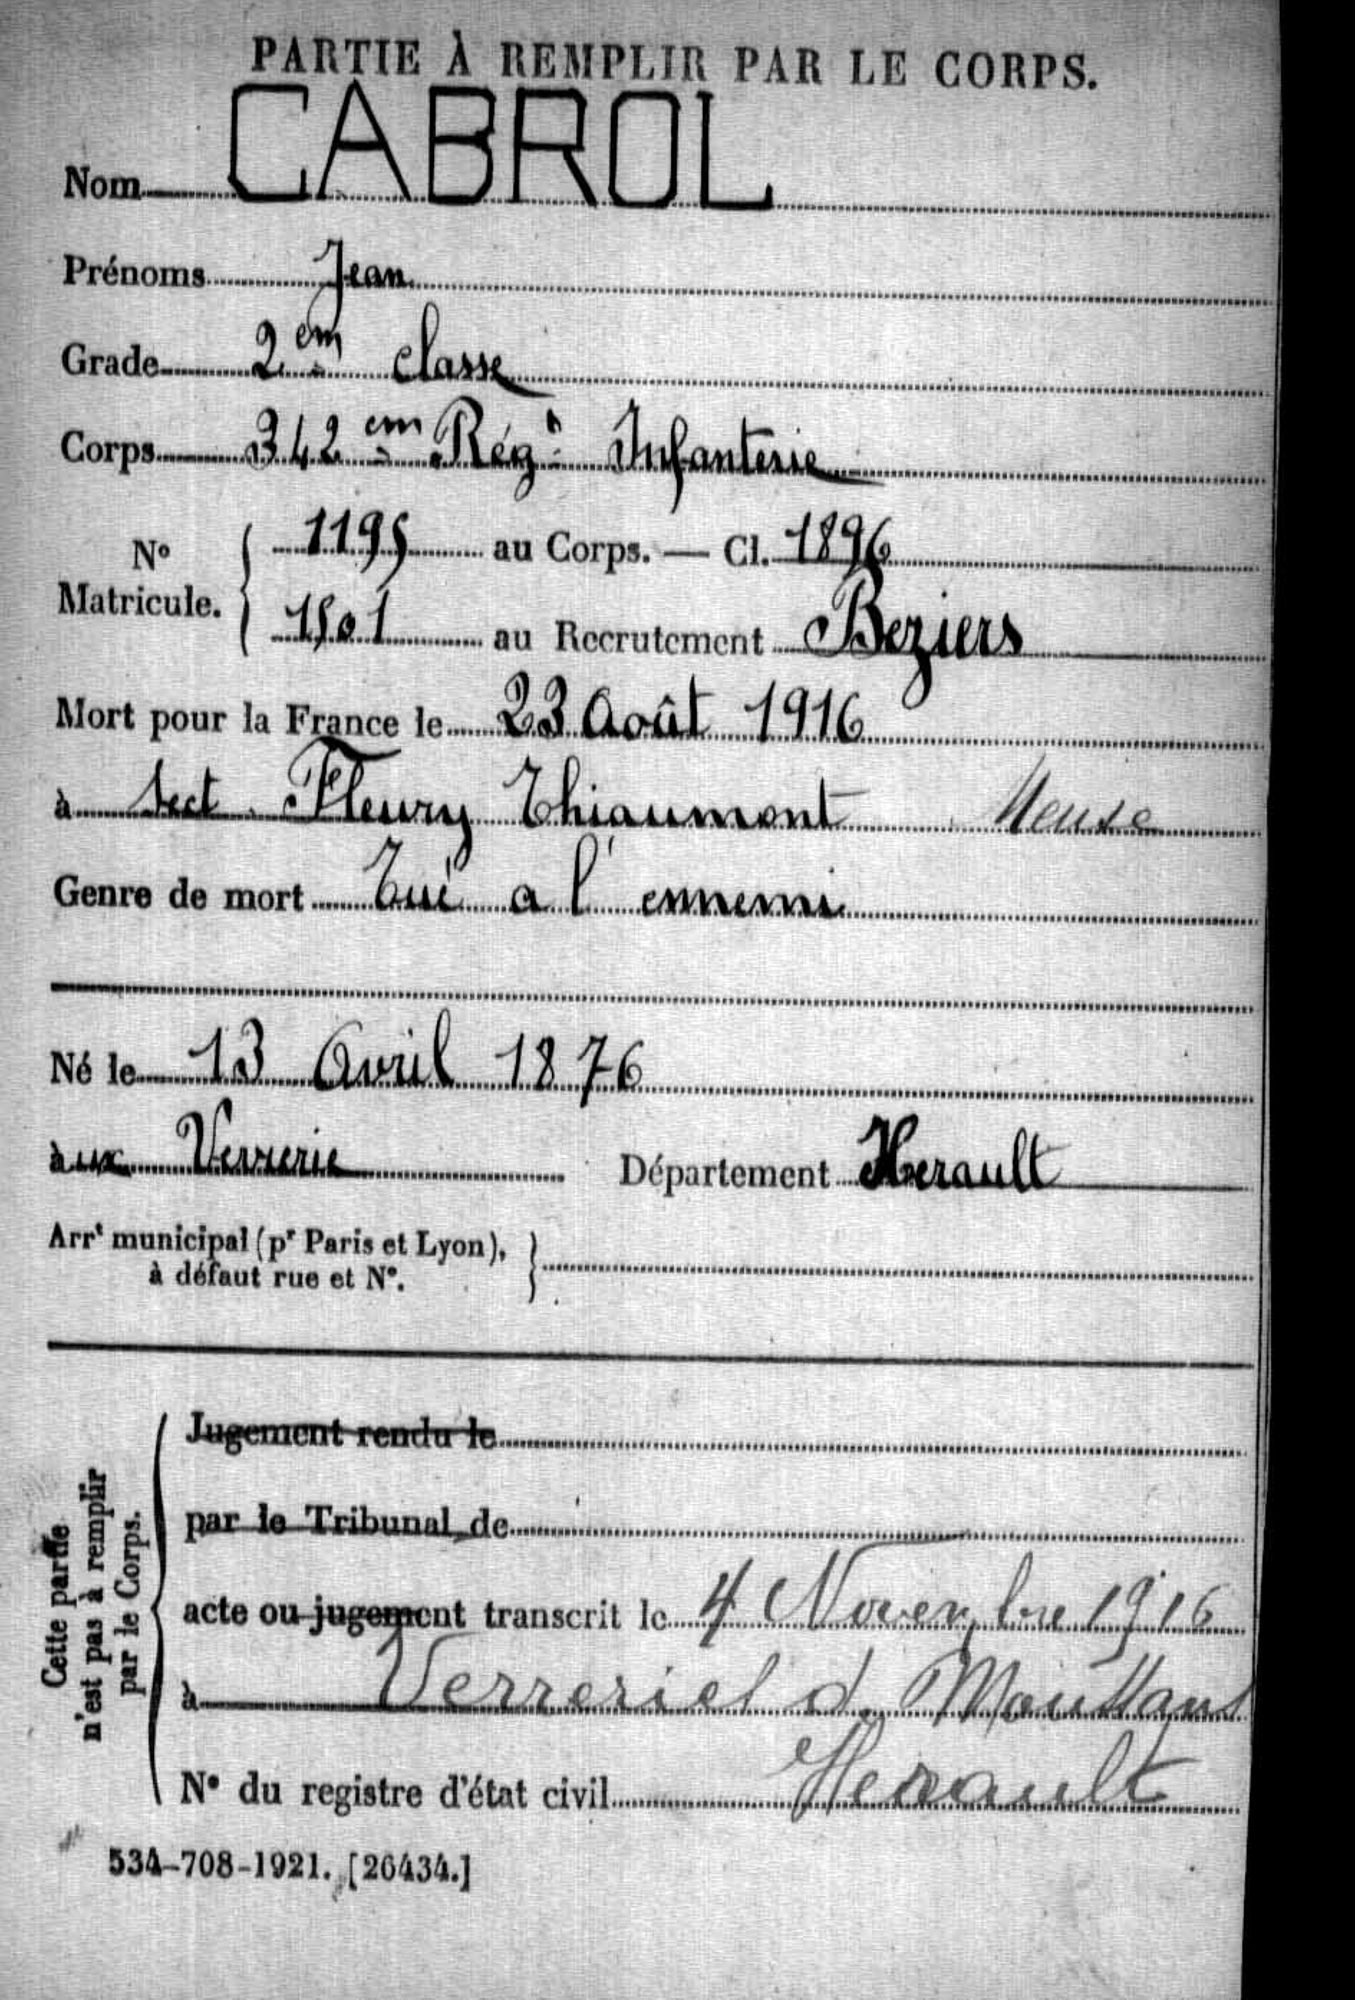 PARTIE À REMPLIR PAR LE CORPS.
Nom CABROL
Prénoms Jean
Grade 2em classe
Corps 342em Régt Infanterie
No Matricule. { 1195 au Corps. — Cl. 1896
1501 au Recrutement Beziers
Mort pour la France le 23 Août 1916
à Sect. Fleury Thiaumont Meuse
Genre de mort Tué a l'ennemi
Né le 13 Avril 1876
àux Verrerie Département Herault
Arrt municipal (pr Paris et Lyon),
à défaut rue et No.
Cette partie
n'est pas à remplir
par le Corps.
Jugement rendu le
par le Tribunal de
acte ou jugement transcrit le 4 Novembre 1916
à Verreries d. Moussans
Herault
No du registre d'état civil
534-708-1921. [26434.]